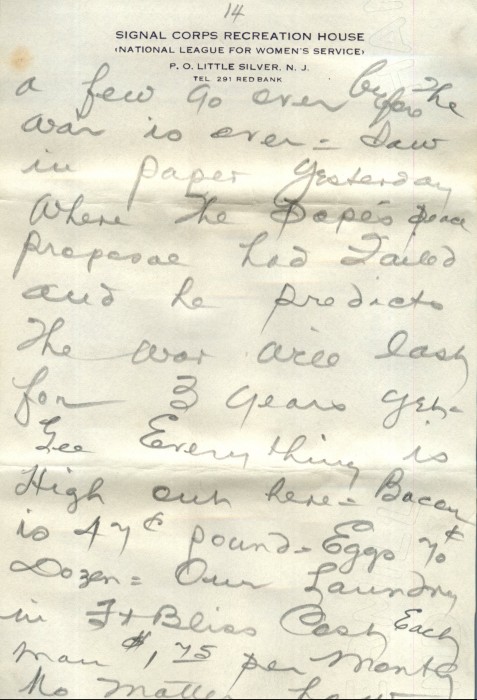 14
SIGNAL CORPS RECREATION HOUSE
(NATIONAL LEAGUE FOR WOMEN'S SERVICE)
P. O. LITTLE SILVER, N. J.
TEL. 291 RED BANK
a few go over before The
war is over = Saw
in paper yesterday
Where The Pope's peace
Proposal had Failed
and he predicts
The war will last
for 3 years yet -
Gee Everything is
High out here = Bacon
is 47¢ pound - Eggs 70¢
Dozen = Our Laundry
in Ft Bliss Cost Each
man $1,75 per Month
No Matter how